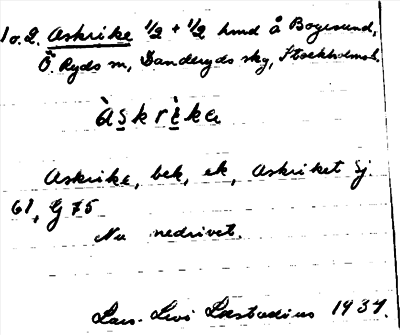 1 o. 2. Askrike 1/2 + 1/2 hmd å Bogesund,
Ö. Ryds sn, Danderyds skg, Stockholms l.
Àskrìka
Askrike, bek, ek, Askriket Sj.
61, G 75
Nu nedrivet.
Lars-Levi Læstadius 1934.